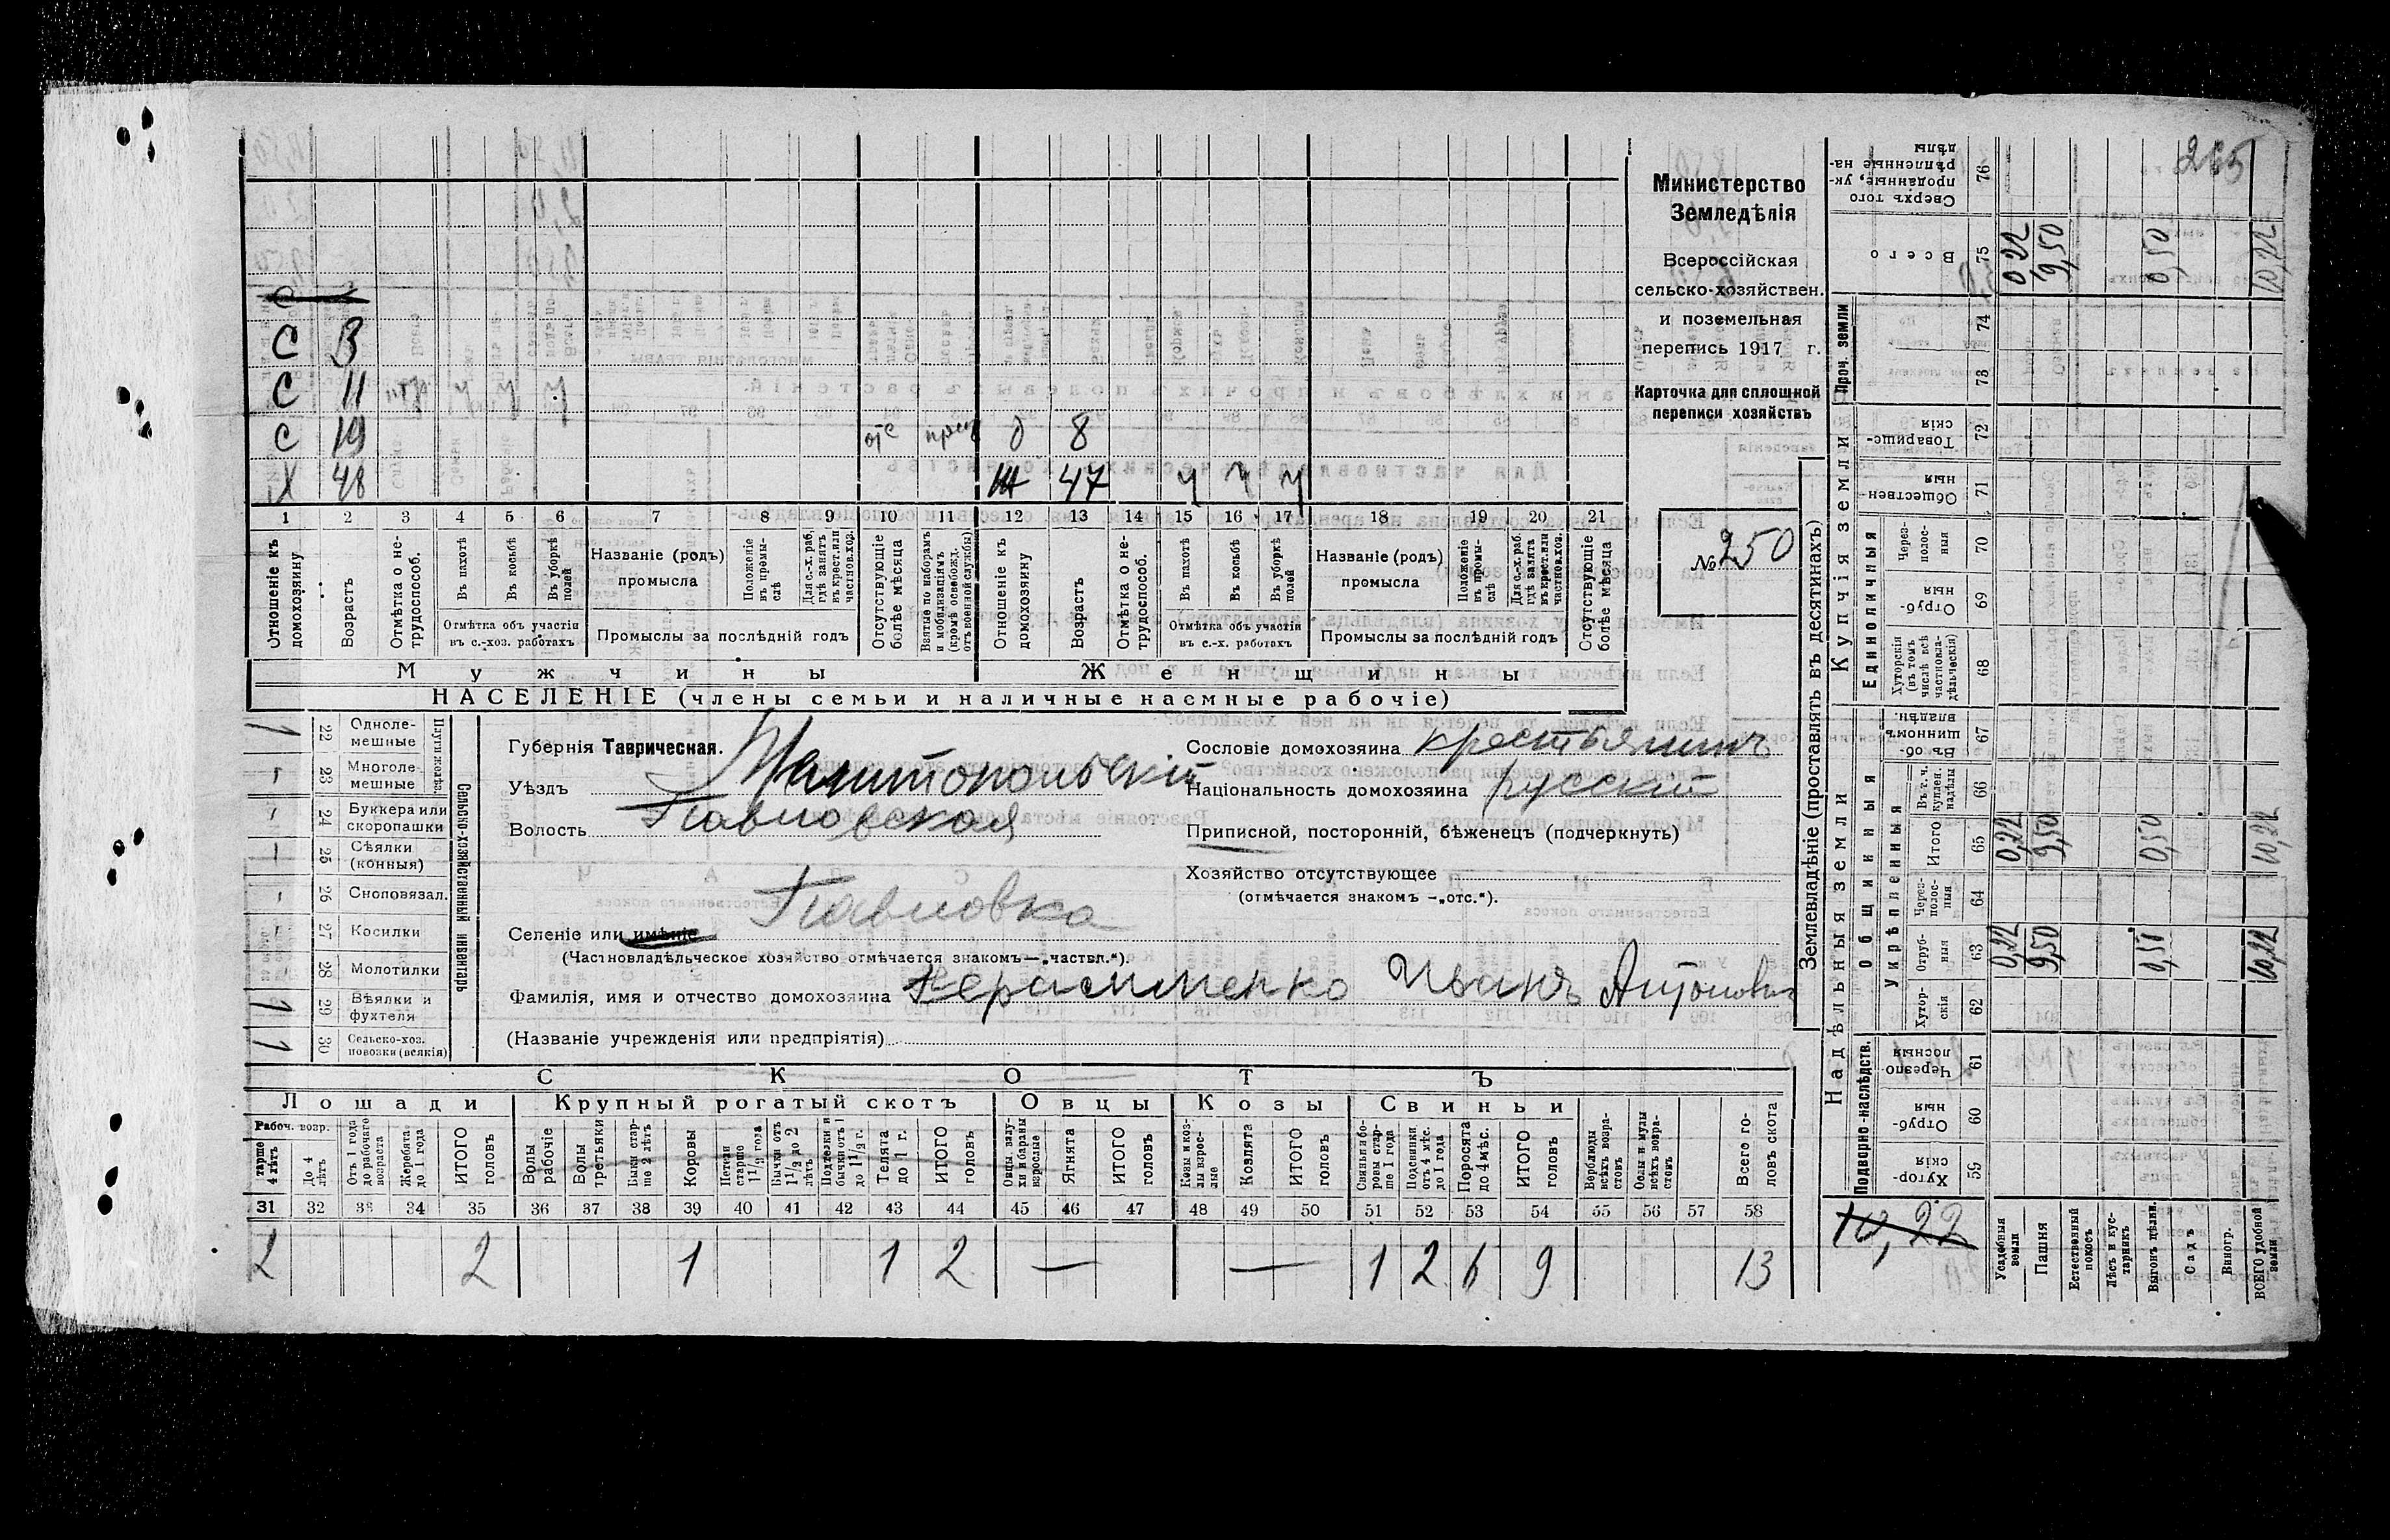 265
Министерство
Земледѣлія
Всероссійская
сельско-хозяйствен.
и поземельная
перепись 1917 г.
Карточка для сплошной
переписи хозяйствъ
№ 250
С 3
С 11
С 19 отс д 8
Х 48 Ж 47 ч ч ч
1 2 3 4 5 6 7 8 9 10 11 12 13 14 15 16 17 18 19 20 21
Отношеніе къ домохозяину
Возрастъ
Отмѣтка о не-трудоспособ.
Въ пахотѣ
Въ косьбѣ
Въ уборкѣ полей
Отмѣтка объ участіи въ с.-хоз. работахъ
Названіе (родъ) промысла
Положеніе въ промы-слѣ
Для с.-х. раб. гдѣ занятъ въ крест. или частновл. хоз.
Промыслы за послѣдній годъ
Отсутствующіе болѣе мѣсяца
Взятые по наборамъ и мобилизаціямъ (кромѣ освобожд. отъ военной службы)
Отношеніе къ домохозяину
Возрастъ
Отмѣтка о не-трудоспособ.
Въ пахотѣ
Въ косьбѣ
Въ уборкѣ полей
Отмѣтка объ участіи въ с.-х. работахъ
Названіе (родъ) промысла
Положеніе въ промы-слѣ
Для с.-х. раб. гдѣ занята въ крест. или частновл. хоз.
Промыслы за послѣдній годъ
Отсутствующіе болѣе мѣсяца
Мужчины Женщины
НАСЕЛЕНІЕ (члены семьи и наличные наемные рабочіе)
Сельско-хозяйственный инвентарь
Плуги желѣзн.
22 Одноле-мешные 1
23 Многоле-мешные -
24 Буккера или скоропашки -
25 Сѣялки (конныя) -
26 Сноповязал. -
27 Косилки -
28 Молотилки -
29 Вѣялки и фухтеля 1
30 Сельско-хоз. повозки (всякія) 1
Губернія Таврическая.
Уѣздъ Мелитопольскій
Волость Павловская
Сословіе домохозяина крестьянинъ
Національность домохозяина русскій
Приписной, посторонній, бѣженецъ (подчеркнуть)
Хозяйство отсутствующее
(отмѣчается знакомъ -„отс.").
Селеніе или имѣніе Павловка
(Частновладѣльческое хозяйство отмѣчается знакомъ—„частвл.").
Фамилія, имя и отчество домохозяина Герасименко Иванъ Антонович
(Названіе учрежденія или предпріятія)
СКОТЪ
Лошади Крупный рогатый скотъ Овцы Козы Свиньи
Рабоч. возр.
старше 4 лѣтъ
До 4 лѣтъ
Отъ 1 года до рабочаго возраста
Жеребята до 1 года
ИТОГО головъ
Волы рабочіе
Волы третьяки
Быки стар-ше 2 лѣтъ
Коровы
Нетели старше 1½ года
Бычки отъ 1½ до 2 лѣтъ
Подтелки и бычки отъ 1 до 1½ г.
Телята до 1 г.
ИТОГО головъ
Овцы, валу-хи и бараны взрослые
Ягнята
ИТОГО головъ
Козы и коз-лы взрос-лые
Козлята
ИТОГО головъ
Свиньи и бо-ровы стар-ше 1 года
Подсвинки отъ 4 мѣс. до 1 года
Поросята до 4 мѣс.
ИТОГО головъ
Верблюды всѣхъ возра-стовъ
Ослы и мулы всѣхъ возра-стовъ
Всего го-ловъ скота
31 32 33 34 35 36 37 38 39 40 41 42 43 44 45 46 47 48 49 50 51 52 53 54 55 56 57 58
2 2 1 1 2 — — 1 2 6 9 13
Землевладѣніе (проставлять въ десятинахъ)
Надѣльныя земли Купчія земли Проч. земли
Подворно-наслѣдств.
Общинныя
Укрѣпленныя
Единоличныя
59 Хутор-скія
60 Отруб-ныя
61 Черезпо-лосныя
62 Хутор-скія
63 Отруб-ныя 0,22 9,50 0,50 10,22
64 Через-полос-ныя
65 Итого 0,22 9,50 0,50 10,22
66 Въ т. ч. куплен. надѣлы
67 Въ об-щинномъ владѣн.
68 Хуторскія (въ томъ числѣ всѣ частновла-дѣльческія)
69 Отруб-ныя
70 Через-полос-ныя
71 Обществен-ныя
72 Товарище-скія
73
74
75 Всего 0,22 9,50 0,50 10,22
76 Сверхъ того проданные, ук-рѣпленные на-дѣлы
10,22
Усадебныя земли
Пашня
Естественный покосъ
Лѣсъ и кус-тарникъ
Выгонъ цѣлин.
Садъ
Виногр.
ВСЕГО удобной земли